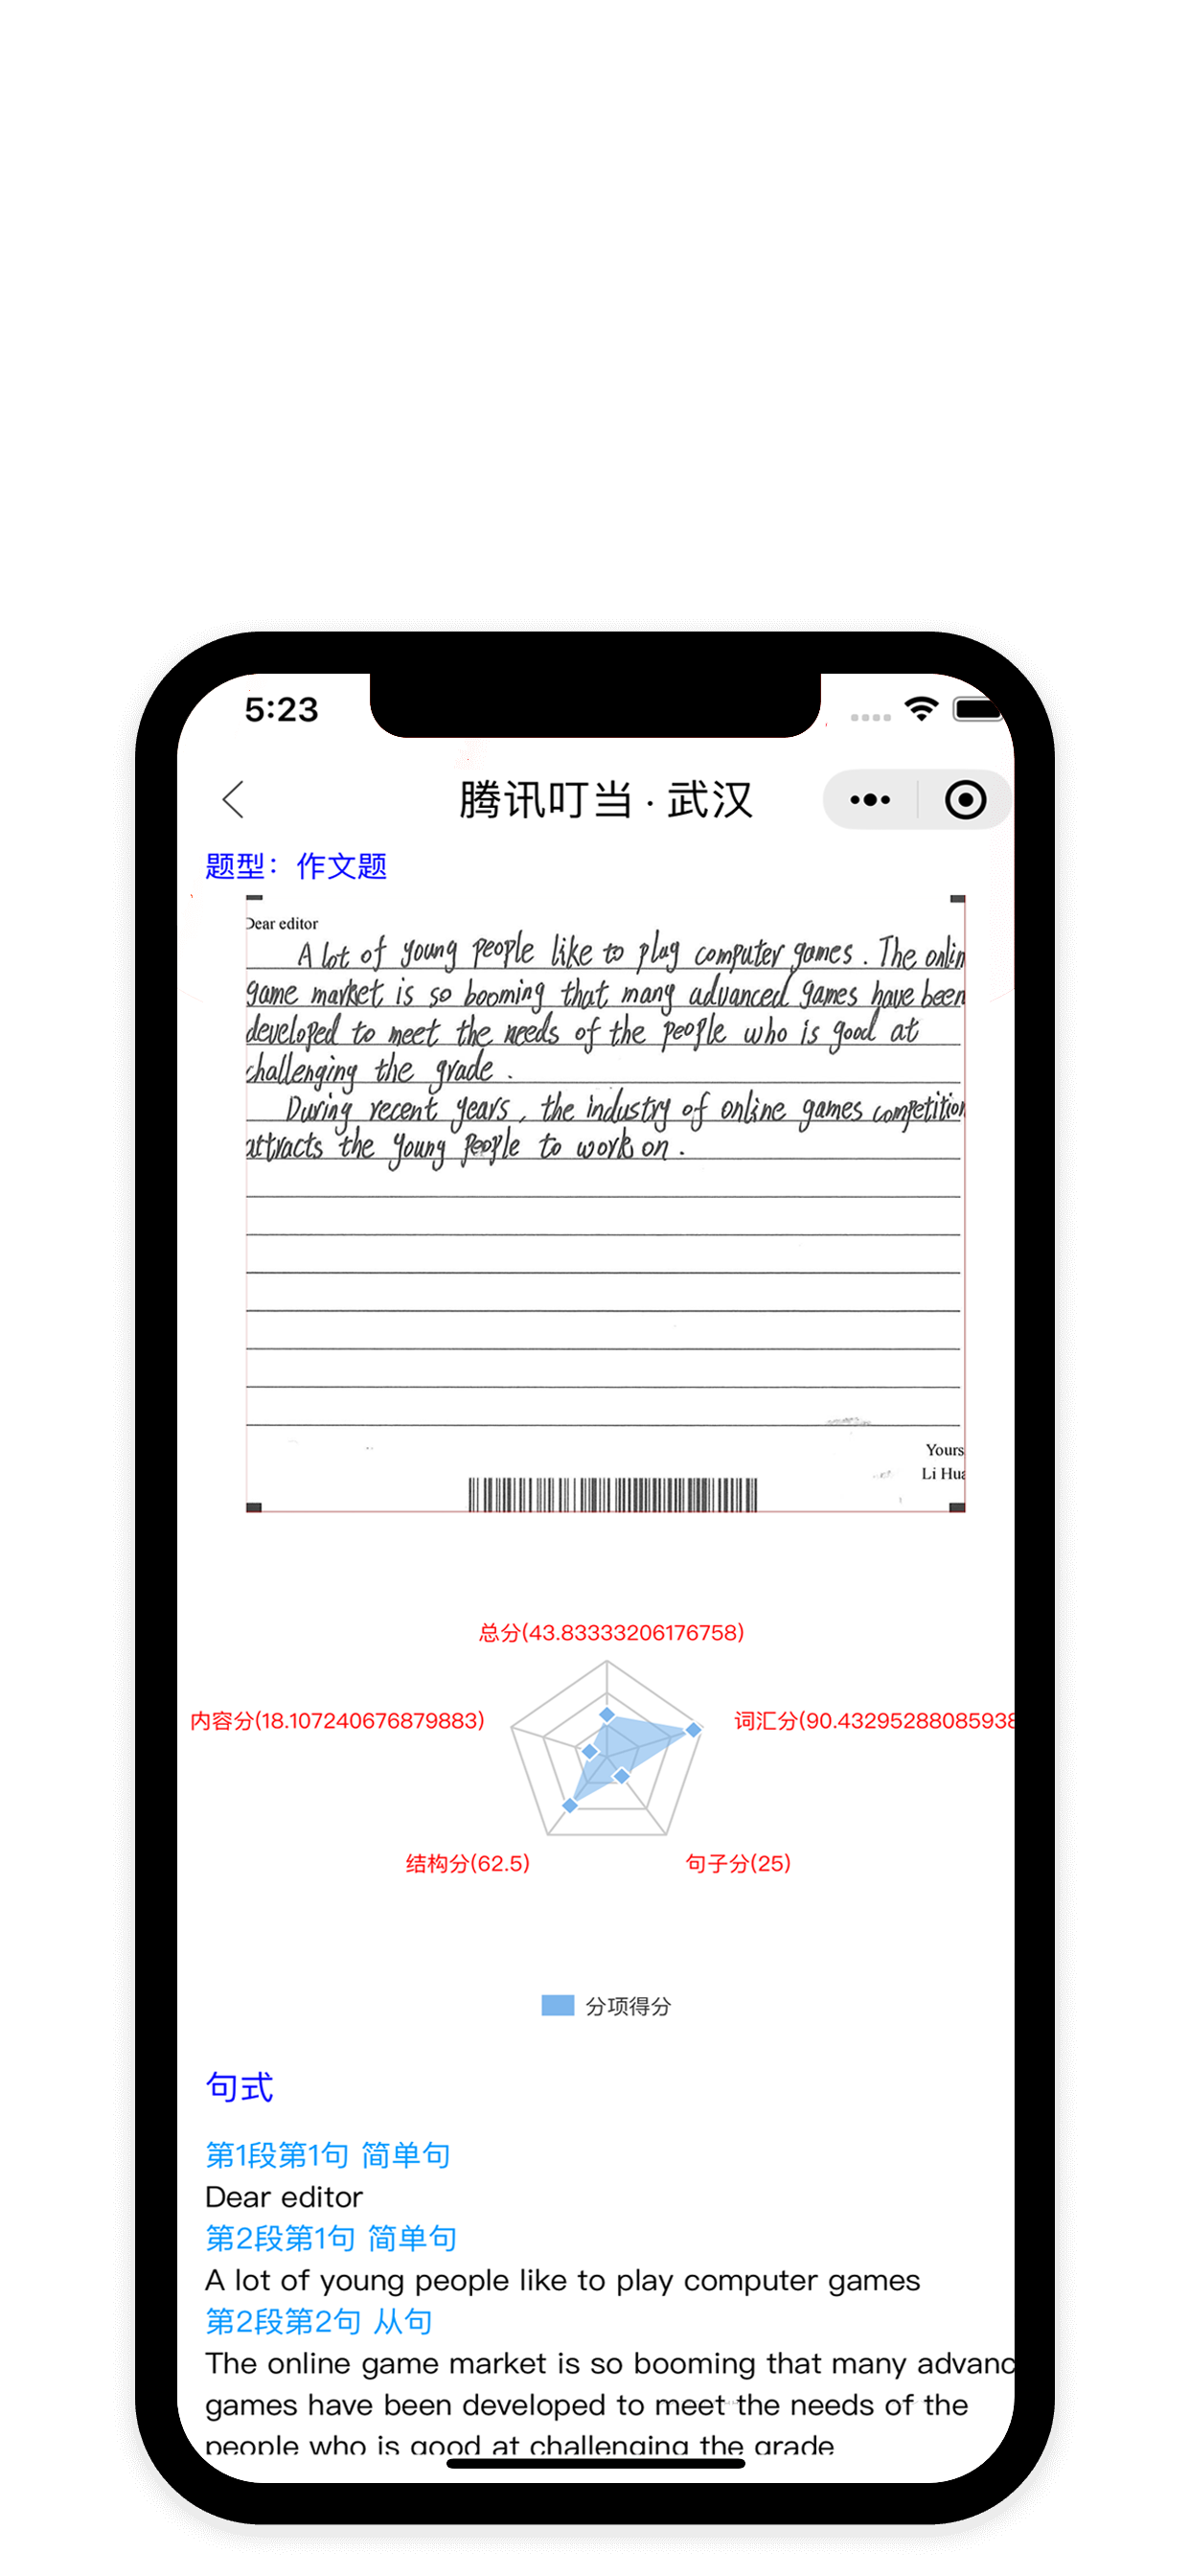 5:23
腾讯叮当 · 武汉
题型：作文题
Dear editor
A lot of young people like to play computer games. The onlin
game market is so booming that many advanced games have been
developed to meet the needs of the people who is good at
challenging the grade.
During recent years, the industry of online games competition
attracts the young people to work on.
Yours
Li Hua
总分(43.83333206176758)
内容分(18.107240676879883)
词汇分(90.43295288085938
结构分(62.5)
句子分(25)
分项得分
句式
第1段第1句 简单句
Dear editor
第2段第1句 简单句
A lot of young people like to play computer games
第2段第2句 从句
The online game market is so booming that many advanc
games have been developed to meet the needs of the
people who is good at challenging the grade